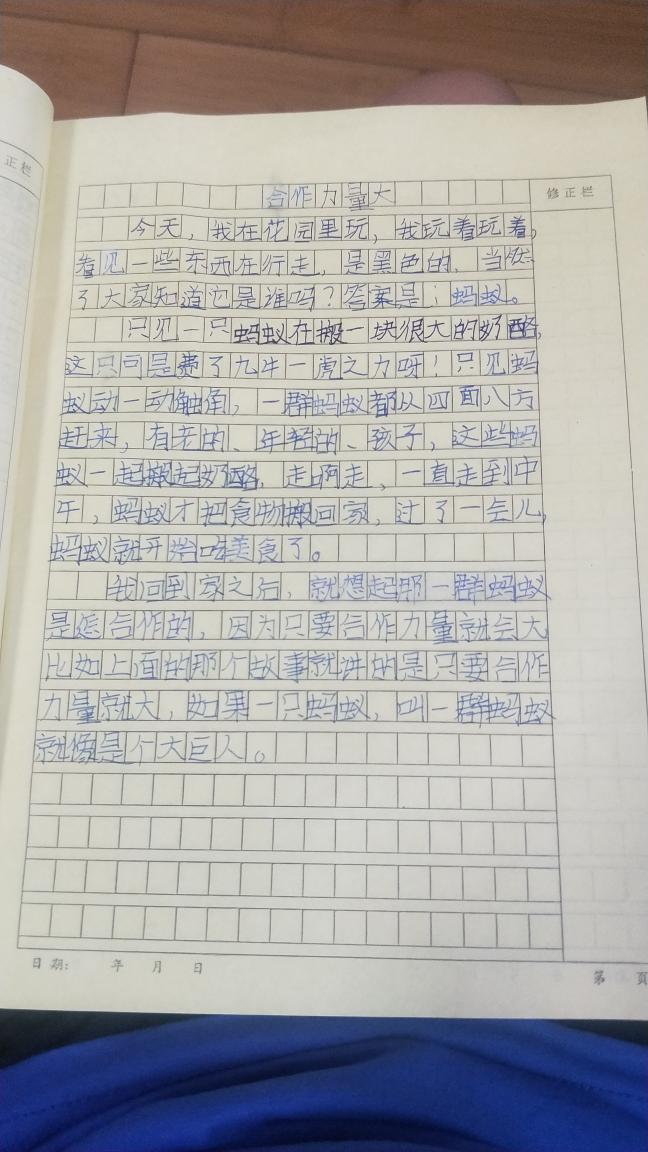 正栏
修正栏
合作力量大
今天，我在花园里玩，我玩着玩着，
看见一些东西在行走，是黑色的，当然
了大家知道它是谁吗？答案是：蚂蚁。
只见一只蚂蚁在搬一块很大的奶酪，
这只可是费了九牛一虎之力呀！只见蚂
蚁动一动触角，一群蚂蚁都从四面八方
赶来，有老的、年轻的、孩子，这些蚂
蚁一起搬起奶酪，走啊走，一直走到中
午，蚂蚁才把食物搬回家，过了一会儿，
蚂蚁就开始吃美食了。
我回到家之后，就想起那一群蚂蚁
是怎合作的，因为只要合作力量就会大
比如上面的那个故事就讲的是只要合作
力量就大，如果一只蚂蚁，叫一群蚂蚁
就像是个大巨人。
日期： 年 月 日
第 页